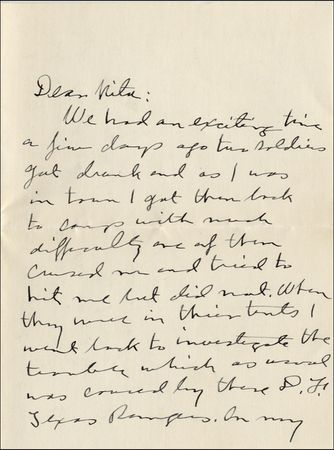 Dear Nita:
We had an exciting time
a few days ago two soldiers
got drunk and as I was
in town I got them back
to camp with much
difficulty one of them
cursed me and tried to
hit me but did not. When
they were in their tents I
went back to investigate the
trouble which as usual
was caused by these
Texas Rangers. On my